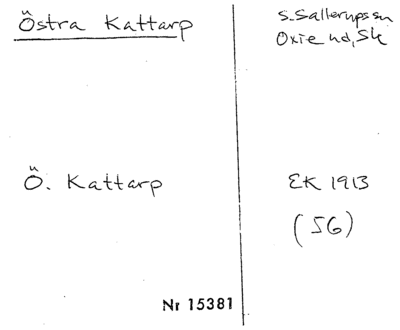 Östra Kattarp
S. Sallerups sn
Oxie hd, Sk
Ö. Kattarp
EK 1913
(56)
Nr 15381